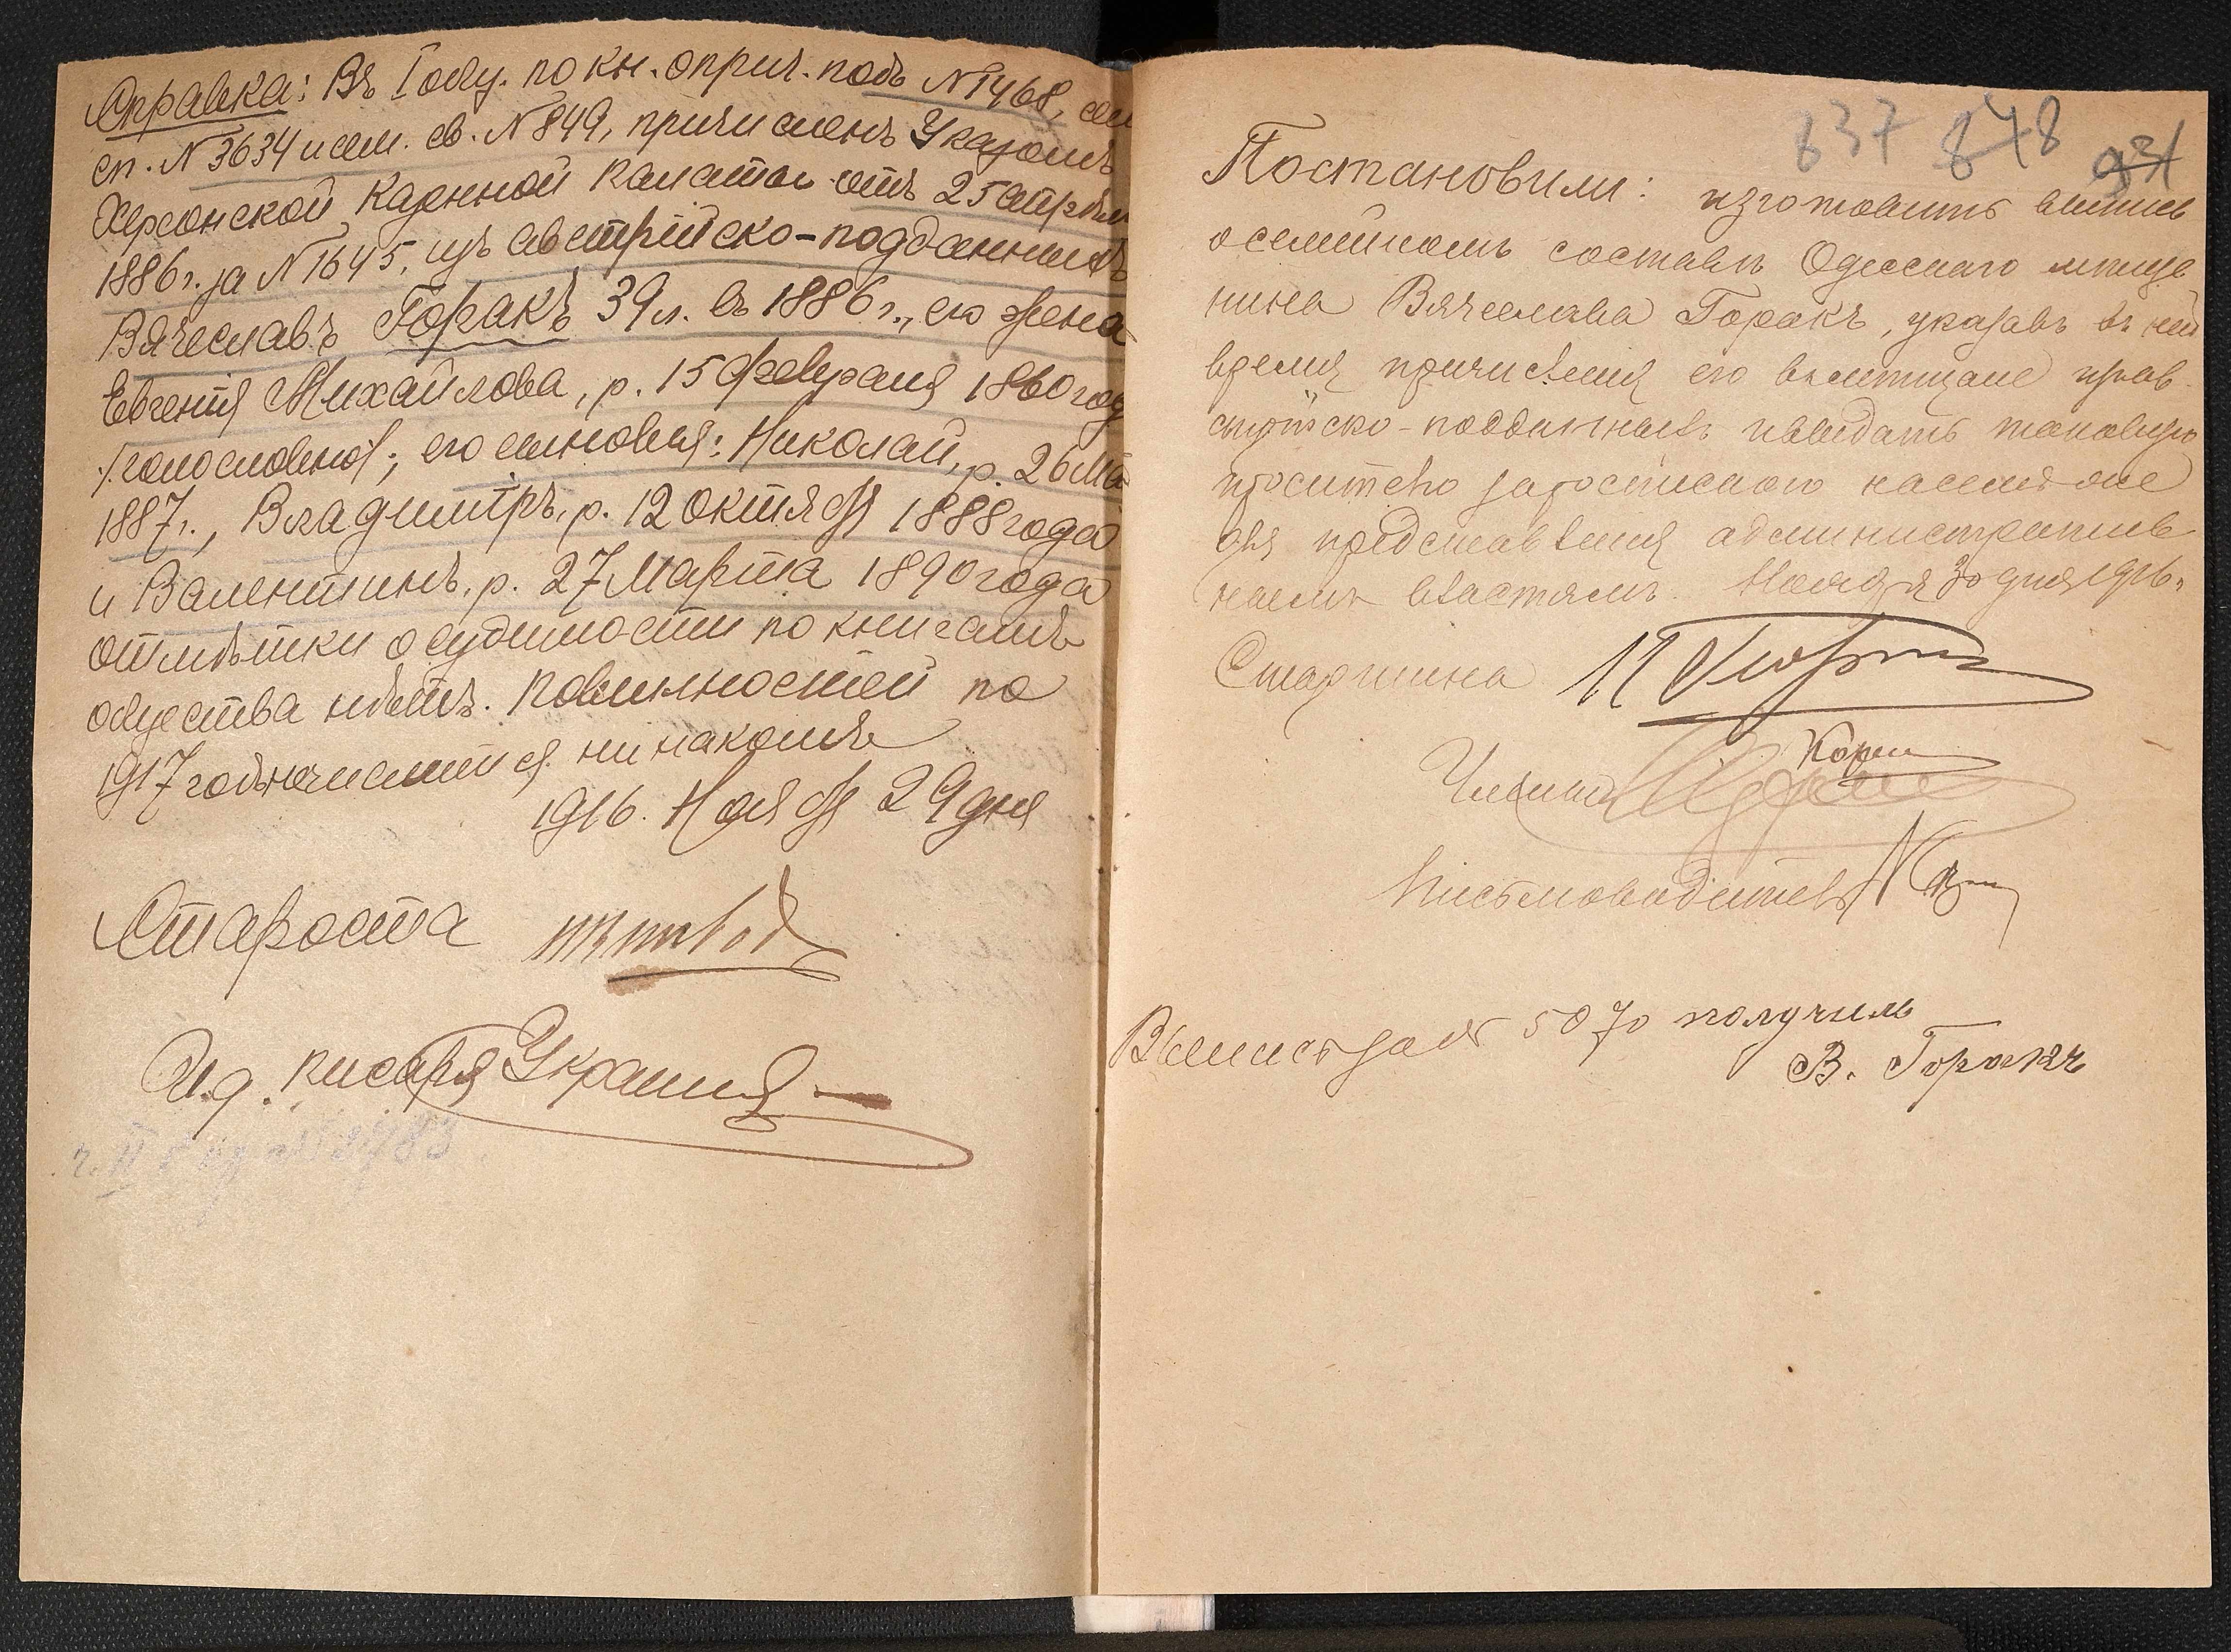 Справка: Въ I общ. по кн. оприч. подъ N 1468, сем
сп. N 3634 и сем. св. N 849, причисленъ Указомъ
Херсонской Казенной Палаты отъ 25 апрѣля
1886 г. за N 1645, изъ австрійско-подданныхъ
Вячеславъ Горакъ 39 л. въ 1886 г., его жена
Евгенія Михайлова, р. 15 февраля 1860 год
/голословно/; его сыновья: Николай, р. 26 Ма
1887 г., Владиміръ, р. 12 октября 1888 года
и Валентинъ, р. 27 Марта 1890 года
отмѣтки о судимости по книгамъ
общества нѣтъ. Повинностей по
1917 годъ не числится никакихъ
1916. Ноября 29 дня
Староста
И. д. писаря
837 848 931
Постановили: изготовить выпись
о семейномъ составѣ Одесскаго мѣща
нина Вячеслава Горакъ, указавъ въ ней
время причисленія его въ мѣщане изъ ав
стрійско-подданныхъ и выдать таковую
просителю за роспискою на семъ же
для представленія административ
нымъ властямъ. Ноября 30 дня 1916 г.
Старшина
Члены
Корш
Письмоводитель
Выпись за N 5070 получилъ
В. Горакъ